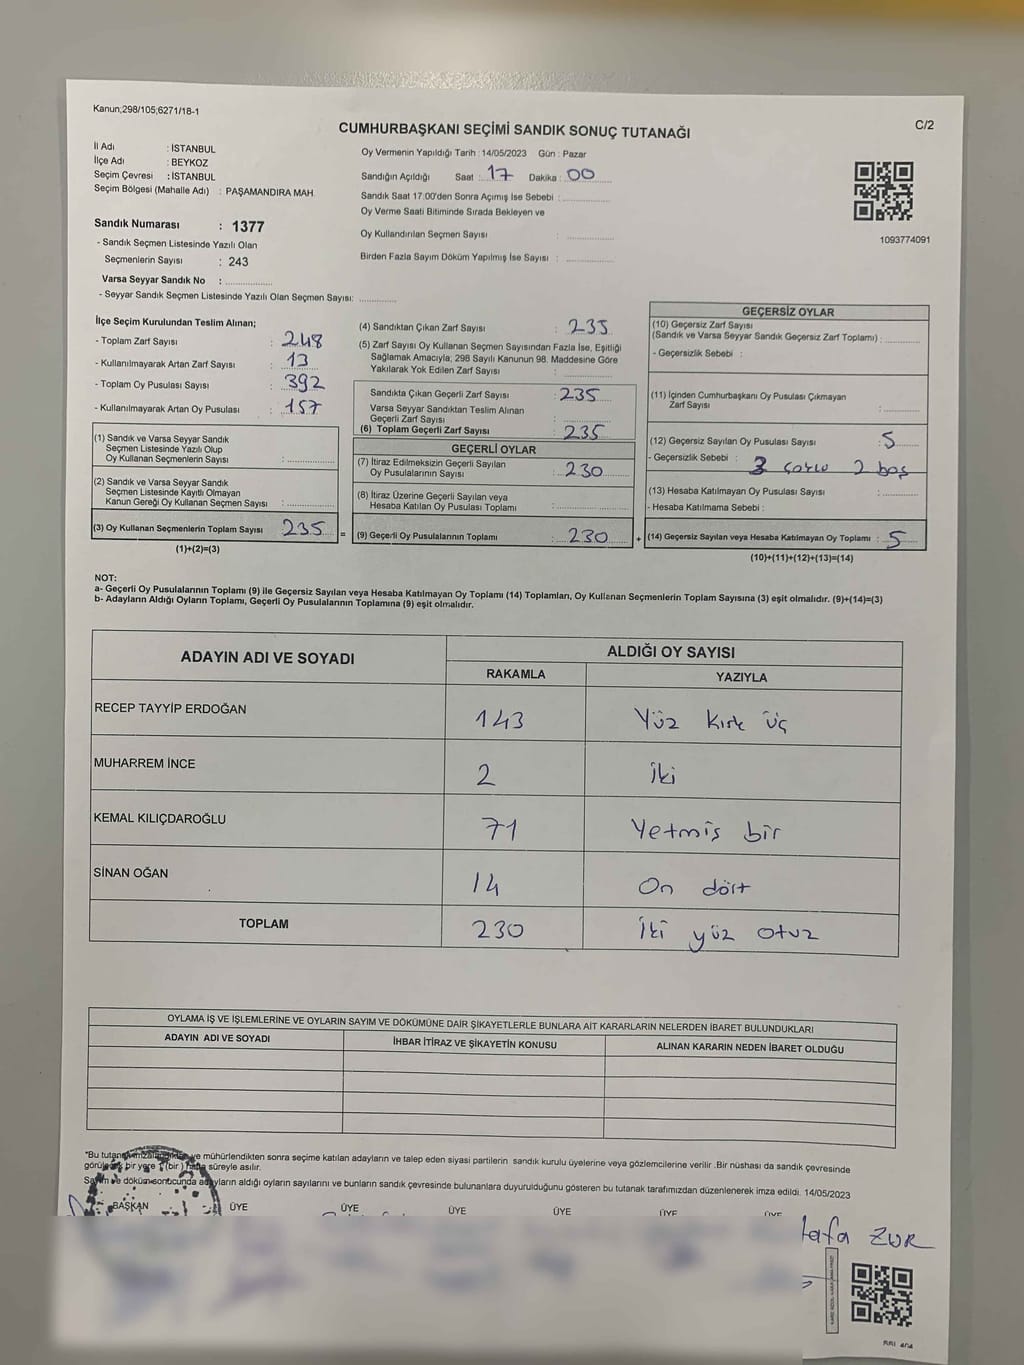 Kanun;298/105;6271/18-1
C/2
CUMHURBAŞKANI SEÇİMİ SANDIK SONUÇ TUTANAĞI
İl Adı : İSTANBUL
İlçe Adı : BEYKOZ
Seçim Çevresi : İSTANBUL
Seçim Bölgesi (Mahalle Adı) : PAŞAMANDIRA MAH.
Oy Vermenin Yapıldığı Tarih : 14/05/2023 Gün : Pazar
Sandığın Açıldığı Saat : 17 Dakika : 00
Sandık Saat 17:00'den Sonra Açımış İse Sebebi :
Oy Verme Saati Bitiminde Sırada Bekleyen ve
Oy Kullandırılan Seçmen Sayısı :
Birden Fazla Sayım Döküm Yapılmış İse Sayısı :
1093774091
Sandık Numarası : 1377
- Sandık Seçmen Listesinde Yazılı Olan
Seçmenlerin Sayısı : 243
Varsa Seyyar Sandık No :
- Seyyar Sandık Seçmen Listesinde Yazılı Olan Seçmen Sayısı:
İlçe Seçim Kurulundan Teslim Alınan;
- Toplam Zarf Sayısı : 248
- Kullanılmayarak Artan Zarf Sayısı : 13
- Toplam Oy Pusulası Sayısı : 392
- Kullanılmayarak Artan Oy Pusulası : 157
(1) Sandık ve Varsa Seyyar Sandık
Seçmen Listesinde Yazılı Olup
Oy Kullanan Seçmenlerin Sayısı :
(2) Sandık ve Varsa Seyyar Sandık
Seçmen Listesinde Kayıtlı Olmayan
Kanun Gereği Oy Kullanan Seçmen Sayısı :
(3) Oy Kullanan Seçmenlerin Toplam Sayısı 235 =
(1)+(2)=(3)
(4) Sandıktan Çıkan Zarf Sayısı : 235
(5) Zarf Sayısı Oy Kullanan Seçmen Sayısından Fazla İse, Eşitliği
Sağlamak Amacıyla; 298 Sayılı Kanunun 98. Maddesine Göre
Yakılarak Yok Edilen Zarf Sayısı :
Sandıkta Çıkan Geçerli Zarf Sayısı : 235
Varsa Seyyar Sandıktan Teslim Alınan
Geçerli Zarf Sayısı :
(6) Toplam Geçerli Zarf Sayısı : 235
GEÇERLİ OYLAR
(7) İtiraz Edilmeksizin Geçerli Sayılan
Oy Pusulalarının Sayısı : 230
(8) İtiraz Üzerine Geçerli Sayılan veya
Hesaba Katılan Oy Pusulası Toplamı :
(9) Geçerli Oy Pusulalarının Toplamı : 230 +
GEÇERSİZ OYLAR
(10) Geçersiz Zarf Sayısı
(Sandık ve Varsa Seyyar Sandık Geçersiz Zarf Toplamı) :
- Geçersizlik Sebebi :
(11) İçinden Cumhurbaşkanı Oy Pusulası Çıkmayan
Zarf Sayısı :
(12) Geçersiz Sayılan Oy Pusulası Sayısı : 5
- Geçersizlik Sebebi : 3 2 boş
(13) Hesaba Katılmayan Oy Pusulası Sayısı :
- Hesaba Katılmama Sebebi :
(14) Geçersiz Sayılan veya Hesaba Katılmayan Oy Toplamı : 5
(10)+(11)+(12)+(13)=(14)
NOT:
a- Geçerli Oy Pusulalarının Toplamı (9) ile Geçersiz Sayılan veya Hesaba Katılmayan Oy Toplamı (14) Toplamları, Oy Kullanan Seçmenlerin Toplam Sayısına (3) eşit olmalıdır. (9)+(14)=(3)
b- Adayların Aldığı Oyların Toplamı, Geçerli Oy Pusulalarının Toplamına (9) eşit olmalıdır.
ADAYIN ADI VE SOYADI
ALDIĞI OY SAYISI
RAKAMLA YAZIYLA
RECEP TAYYİP ERDOĞAN 143 Yüz Kırk üç
MUHARREM İNCE 2 İki
KEMAL KILIÇDAROĞLU 71 Yetmiş bir
SİNAN OĞAN 14 On dört
TOPLAM 230 İki yüz otuz
OYLAMA İŞ VE İŞLEMLERİNE VE OYLARIN SAYIM VE DÖKÜMÜNE DAİR ŞİKAYETLERLE BUNLARA AİT KARARLARIN NELERDEN İBARET BULUNDUKLARI
ADAYIN ADI VE SOYADI İHBAR İTİRAZ VE ŞİKAYETİN KONUSU ALINAN KARARIN NEDEN İBARET OLDUĞU
"Bu tutanak imzalandıktan ve mühürlendikten sonra seçime katılan adayların ve talep eden siyasi partilerin sandık kurulu üyelerine veya gözlemcilerine verilir .Bir nüshası da sandık çevresinde
görülecek bir yere 1 (bir ) hafta süreyle asılır.
Sayım ve döküm sonucunda adayların aldığı oyların sayılarını ve bunların sandık çevresinde bulunanlara duyurulduğunu gösteren bu tutanak tarafımızdan düzenlenerek imza edildi. 14/05/2023
BAŞKAN ÜYE ÜYE ÜYE ÜYE ÜYE ÜYE
tafa ZUR